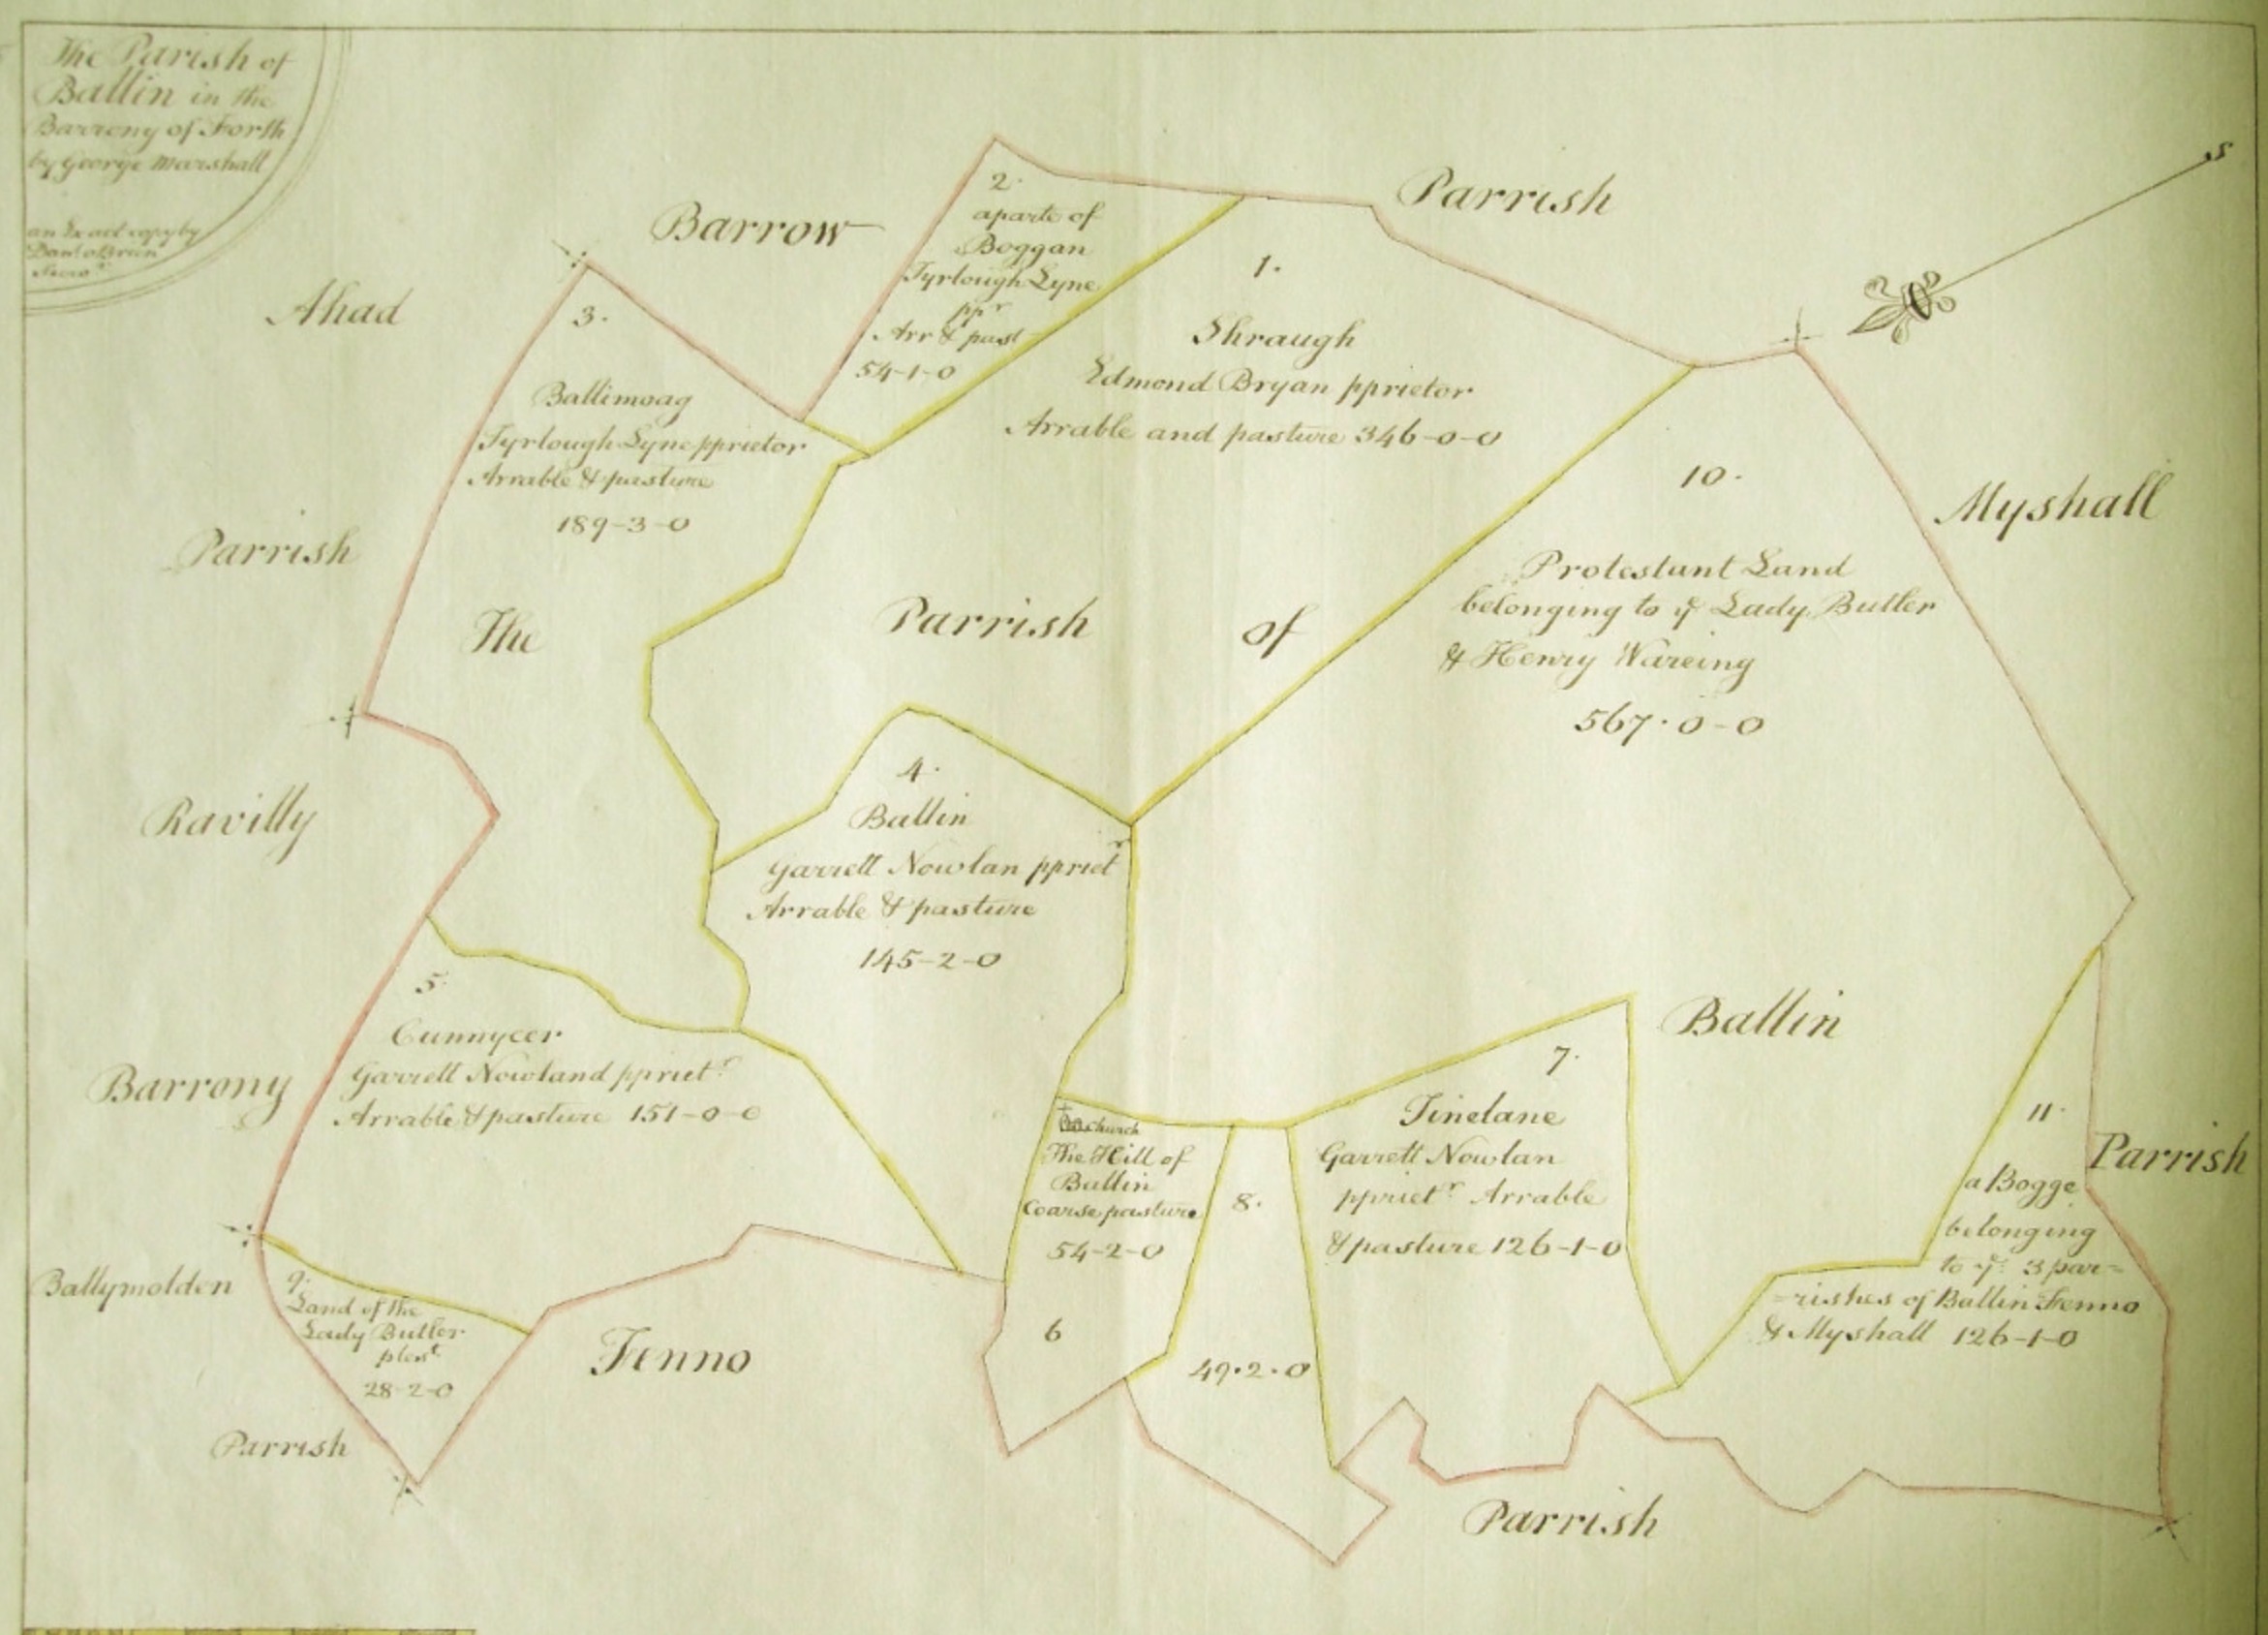 The Parish of
Ballin in the
Barrony of Forth
by George Marshall
an Exact copy by
Danl. o Brien
Barrow
Parrish
S
Ahad
Parrish
Ravilly
Barrony
Ballymolden
Parrish
Myshall
Parrish
Fenno
Parrish
The Parrish of
Ballin
2.
aparte of
Boggan
Tyrlough Lyne
ppr
Arr & past
54-1-0
1.
Shraugh
Edmond Bryan pprietor
Arrable and pasture 346-0-0
3.
Ballimoag
Tyrlough Lyne pprietor
Arrable & pasture
189-3-0
10.
Protestant Land
belonging to ye Lady Butler
& Henry Wareing
567.0-0
4.
Ballin
Garrett Nowlan pprietr
Arrable & pasture
145-2-0
5.
Cunnycer
Garrett Nowland ppriet.r
Arrable & pasture 151-0-0
church
The Hill of
Ballin
Coarse pasture
54-2-0
6
8.
49.2.0
7.
Tinelane
Garrett Nowlan
ppriet.r Arrable
& pasture 126-1-0
11.
a Bogge
belonging
to ye 3 par=
=rishes of Ballin Fenno
& Myshall 126-1-0
9.
Land of the
Lady Butler
28-2-0